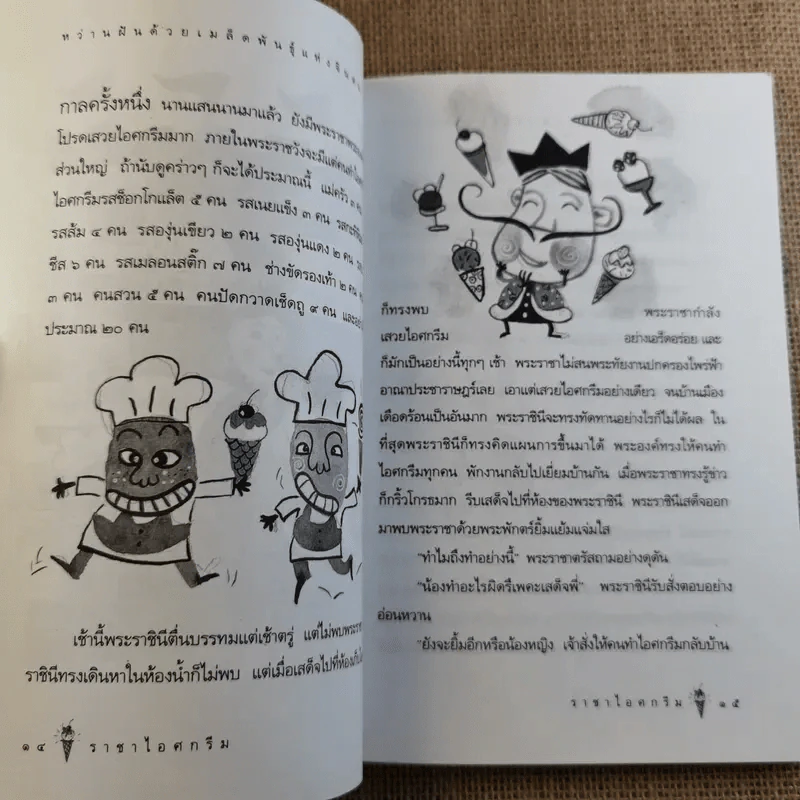 หว่านฝันด้วยเมล็ดพันธุ์แห่งจินต
กาลครั้งหนึ่ง นานแสนนานมาแล้ว ยังมีพระราชา
โปรดเสวยไอศกรีมมาก ภายในพระราชวังจะมีแต่คนทำ
ส่วนใหญ่ ถ้านับดูคร่าวๆ ก็จะได้ประมาณนี้ แม่ครัว ๓
ไอศกรีมรสช็อกโกแล็ต ๕ คน รสเนยแข็ง ๓ คน
รสส้ม ๔ คน รสองุ่นเขียว ๒ คน รสองุ่นแดง ๒ คน
ชีส ๖ คน รสเมลอนสติ๊ก ๗ คน ช่างขัดรองเท้า ๒ คน
๓ คน คนสวน ๕ คน คนปัดกวาดเช็ดถู ๙ คน
ประมาณ ๒๐ คน
เช้านี้พระราชินีตื่นบรรทมแต่เช้าตรู่ แต่ไม่พบพระรา
ราชินีทรงเดินหาในห้องน้ำก็ไม่พบ แต่เมื่อเสด็จไปที่ห้อง
๑๔ ราชาไอศกรีม
ก็ทรงพบ พระราชากำลัง
เสวยไอศกรีม อย่างเอร็ดอร่อย และ
ก็มักเป็นอย่างนี้ทุกๆ เช้า พระราชาไม่สนพระทัยงานปกครองไพร่ฟ้า
อาณาประชาราษฎร์เลย เอาแต่เสวยไอศกรีมอย่างเดียว จนบ้านเมือง
เดือดร้อนเป็นอันมาก พระราชินีจะทรงทัดทานอย่างไรก็ไม่ได้ผล ใน
ที่สุดพระราชินีก็ทรงคิดแผนการขึ้นมาได้ พระองค์ทรงให้คนทำ
ไอศกรีมทุกคน พักงานกลับไปเยี่ยมบ้านกัน เมื่อพระราชาทรงรู้ข่าว
ก็กริ้วโกรธมาก รีบเสด็จไปที่ห้องของพระราชินี พระราชินีเสด็จออก
มาพบพระราชาด้วยพระพักตร์ยิ้มแย้มแจ่มใส
"ทำไมถึงทำอย่างนี้" พระราชาตรัสถามอย่างดุดัน
"น้องทำอะไรผิดรึเพคะเสด็จพี่" พระราชินีรับสั่งตอบอย่าง
อ่อนหวาน
"ยังจะยิ้มอีกหรือน้องหญิง เจ้าสั่งให้คนทำไอศกรีมกลับบ้าน
ราชาไอศกรีม ๑๕